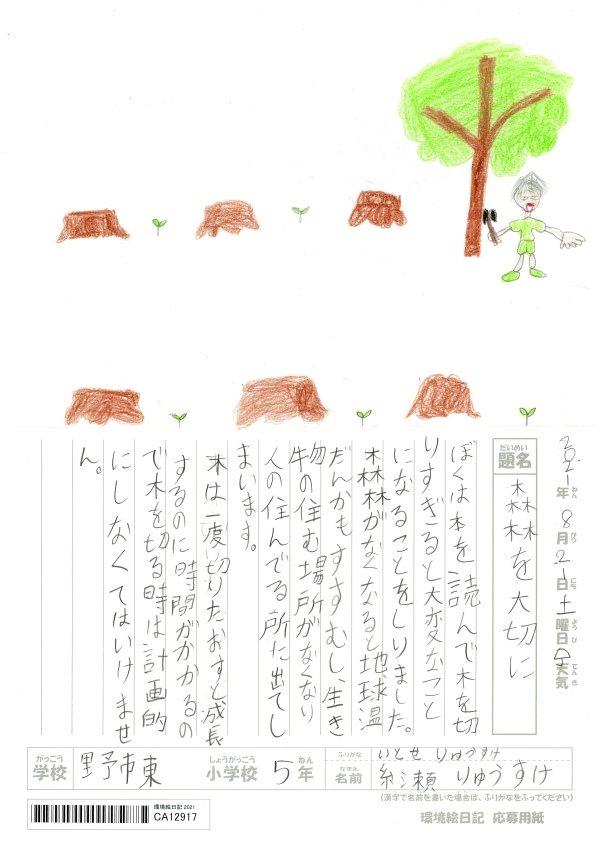 2021年8月21日土曜日 天気
だいめい
題名
森林を大切に
ぼくは本を読んで木を切
りすぎると大変なこと
になることをしりました。
森林がなくなると地球温
だんかもすすむし、生き
物の住む場所がなくなり
人の住んでる所に出てし
まいます。
木は一度切りたおすと成長
するのに時間がかかるの
で木を切る時は計画的
にしなくてはいけませ
ん。
がっこう
学校
野市東
しょうがっこう
小学校
5
ねん
年
ふりがな
いとせ りゅうすけ
なまえ
名前
糸瀬 りゅうすけ
(漢字で名前を書いた場合は、ふりがなをふってください)
環境絵日記 2021
CA12917
環境絵日記 応募用紙